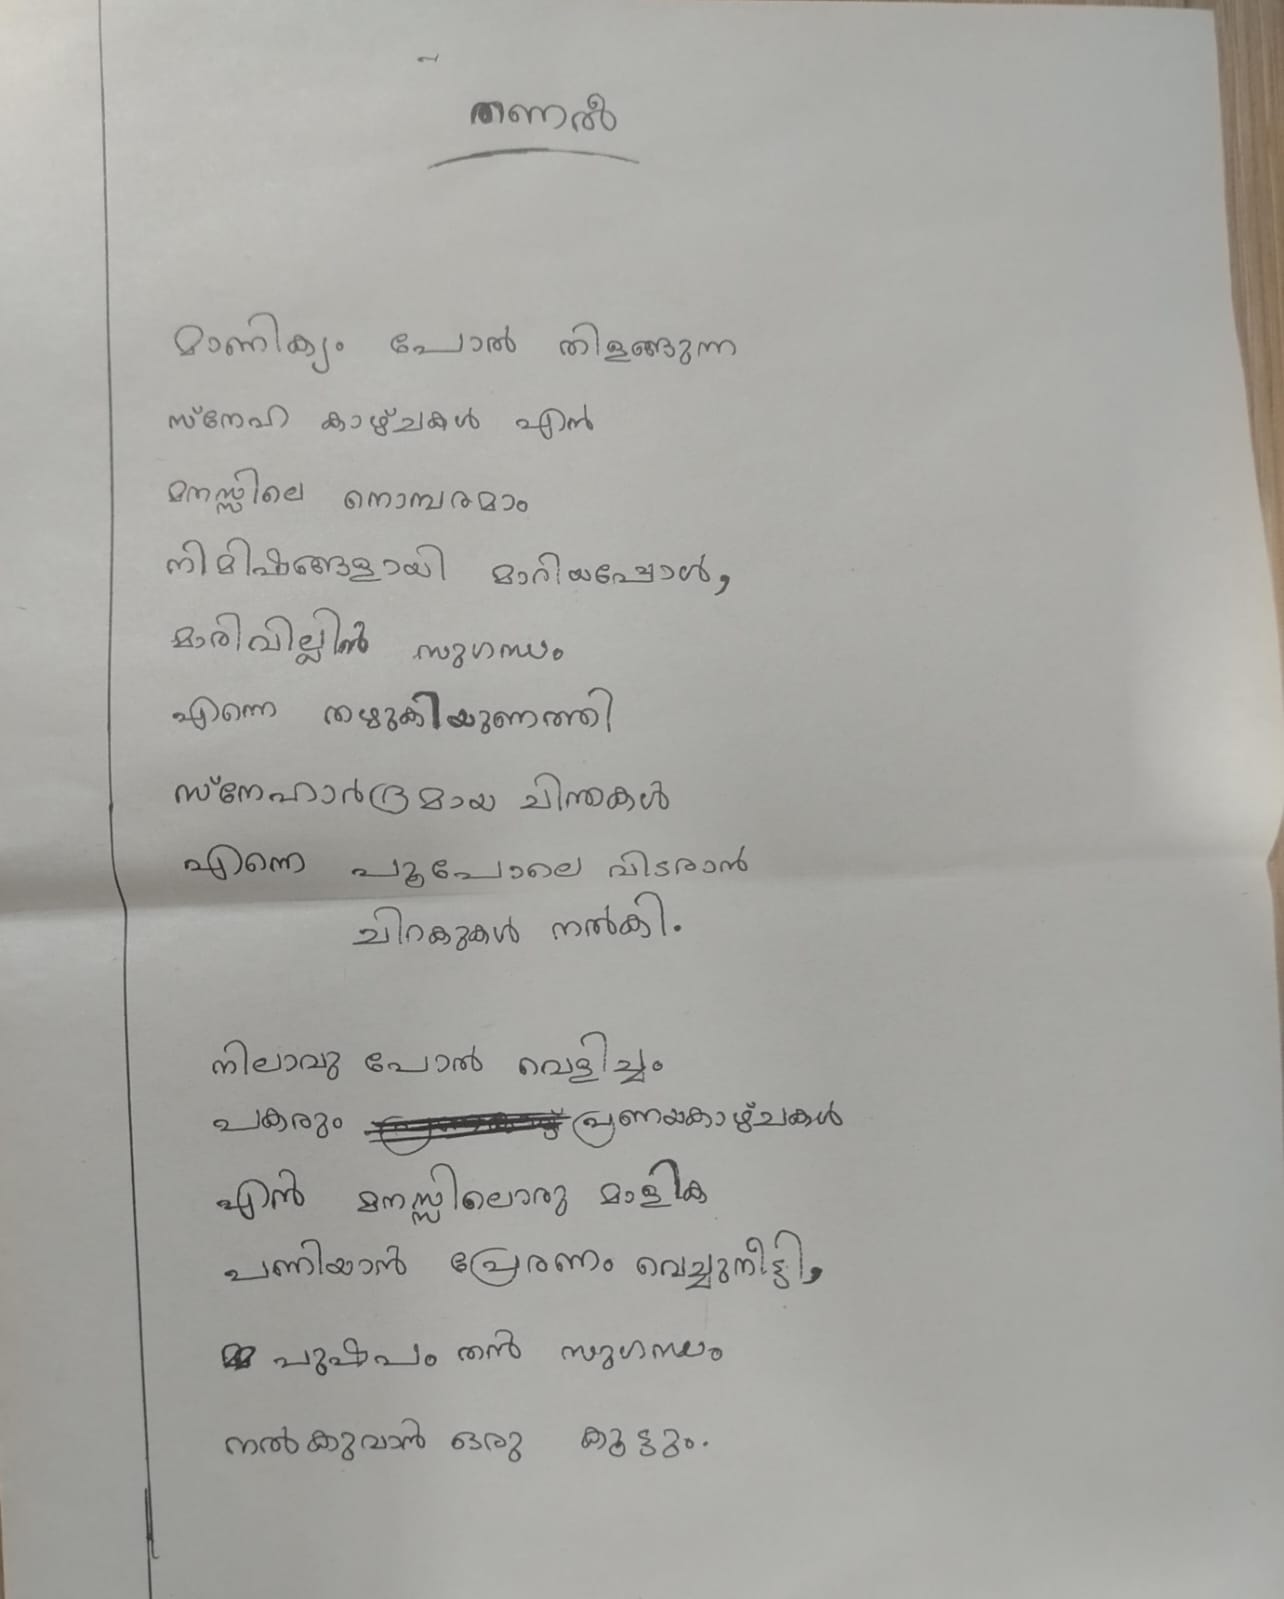 തണൽ
മാണിക്യം പോൽ തിളങ്ങുന്ന
സ്നേഹ കാഴ്ചകൾ എൻ
മനസ്സിലെ നൊമ്പരമാം
നിമിഷങ്ങളായി മാറിയപ്പോൾ,
മാരിവില്ലിൻ സുഗന്ധം
എന്നെ തഴുകിയുണത്തി
സ്നേഹാർദ്രമായ ചിന്തകൾ
എന്നെ പൂപോലെ വിടരാൻ
ചിറകുകൾ നൽകി.
നിലാവു പോൽ വെളിച്ചം
പകരും പ്രണയകാഴ്ചകൾ
എൻ മനസ്സിലൊരു മാളിക
പണിയാൻ പ്രേരണം വെച്ചുനീട്ടി,
പുഷ്പം തൻ സുഗന്ധം
നൽകുവാൻ ഒരു കൂട്ടും.